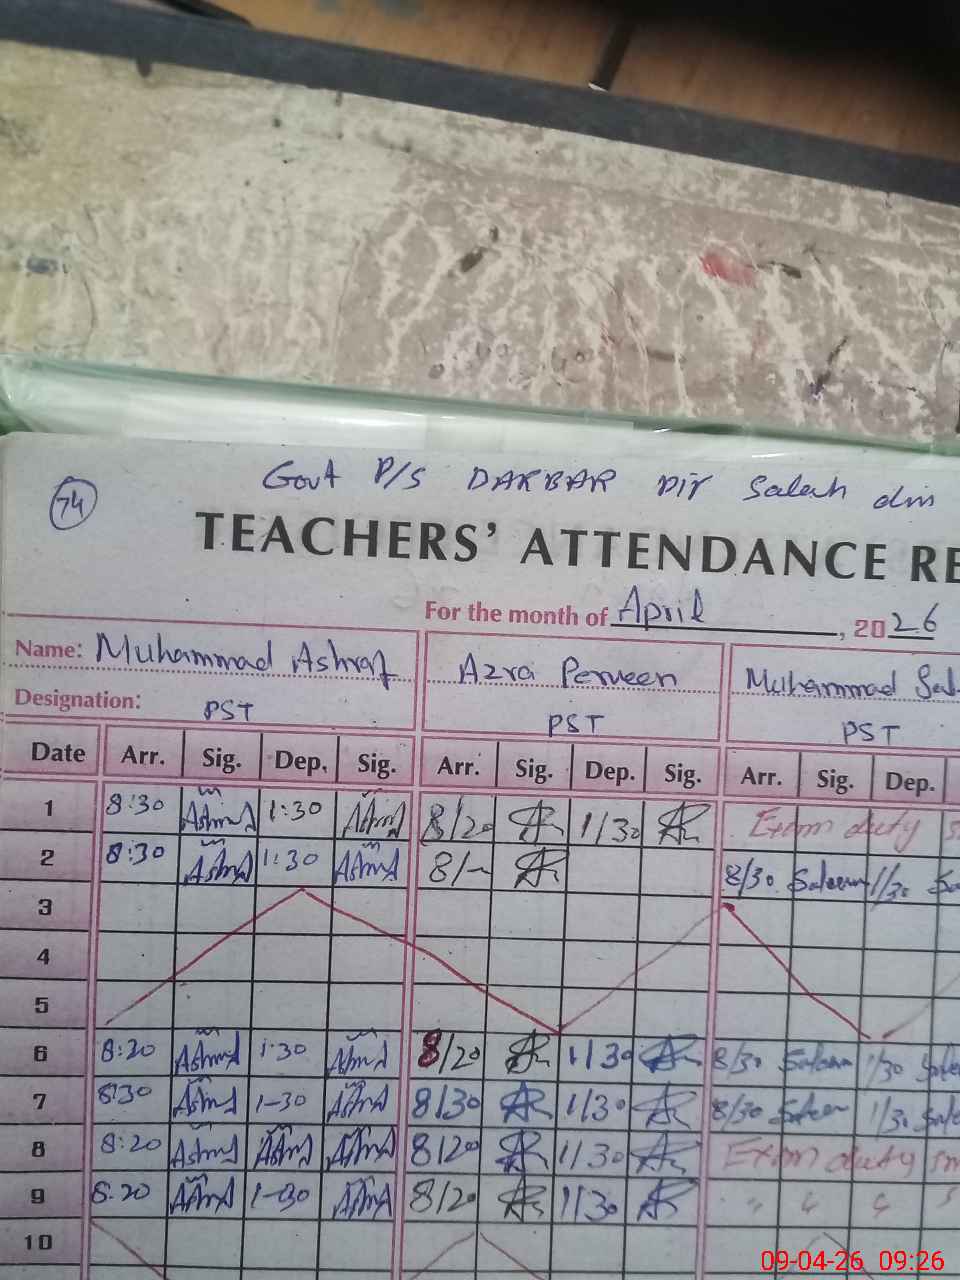 74
Govt P/S DARBAR Pir Salah din
TEACHERS' ATTENDANCE RE
For the month of April, 2026
Name: Muhammad Ashraf Azra Perveen Muhammad Sal
Designation: PST PST PST
Date Arr. Sig. Dep. Sig. Arr. Sig. Dep. Sig. Arr. Sig. Dep.
1 8:30 Ashraf 1:30 Ashraf 8/20 1/30 Exam duty
2 8:30 Ashraf 1:30 Ashraf 8/- 8/30 Saleem 1/30
3
4
5
6 8:20 Ashraf 1:30 Ashraf 8/20 1/30 8/30 Saleem 1/30
7 8:30 Ashraf 1-30 Ashraf 8/30 1/30 8/30 Saleem 1/30
8 8:20 Ashraf Ashraf Ashraf 8/20 1/30 Exam duty
9 8:20 Ashraf 1-30 Ashraf 8/20 1/30
10
09-04-26 09:26